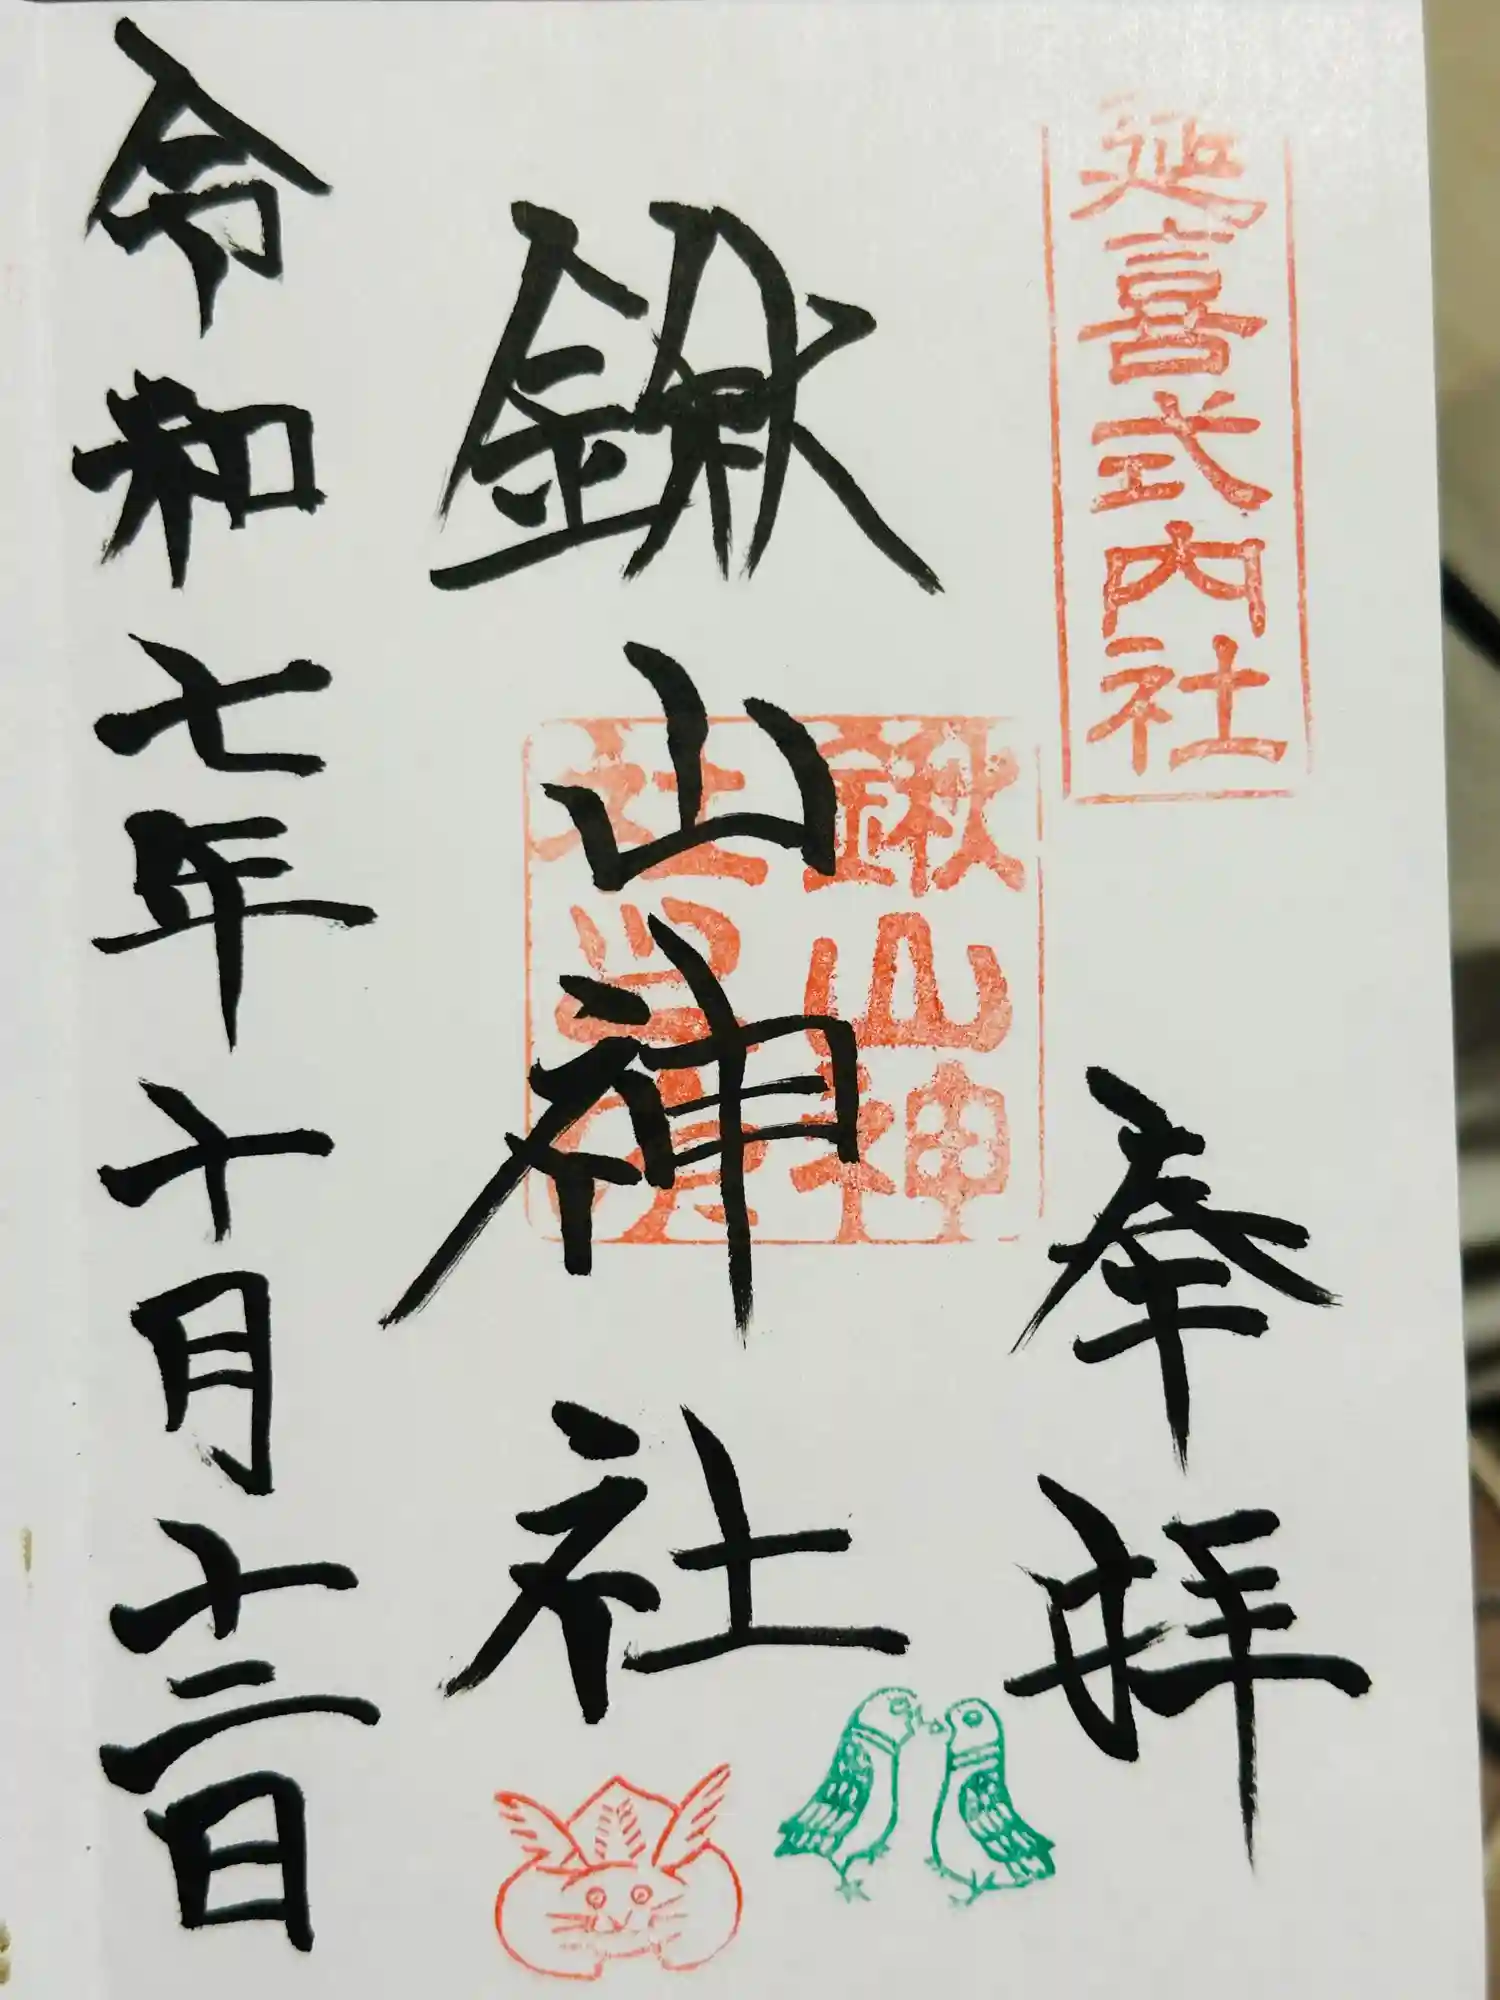 延喜式内社
奉拝
鍬山神社
鍬山神
社之印
令和七年十月十二日